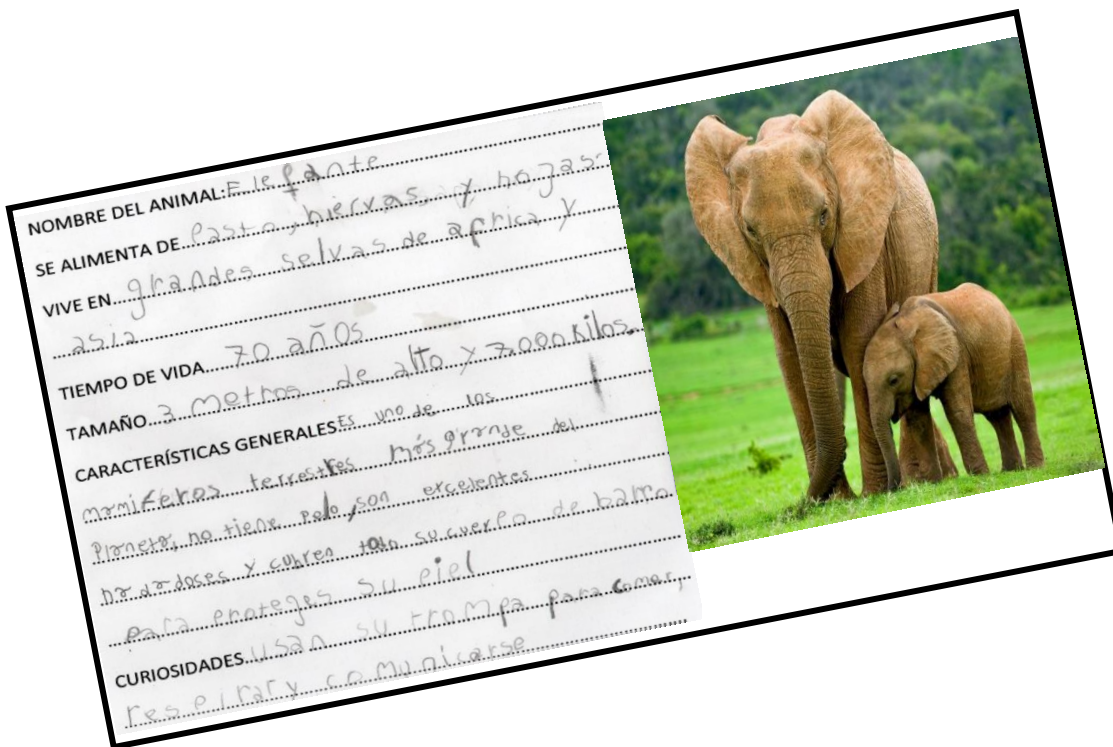 NOMBRE DEL ANIMAL:Elefante
SE ALIMENTA DE pasto, hiervas, y hojas
VIVE EN grandes selvas de africa y
asia
TIEMPO DE VIDA 70 años
TAMAÑO 3 metros de alto y 7.000 kilos
CARACTERÍSTICAS GENERALES Es uno de los
mamiferos terrestres más grande del
planeta, no tiene pelo, son excelentes
nadadoses y cubren todo su cuerpo de barro
para proteges su piel
CURIOSIDADES usan su trompa para comer,
respirar y comunicarse